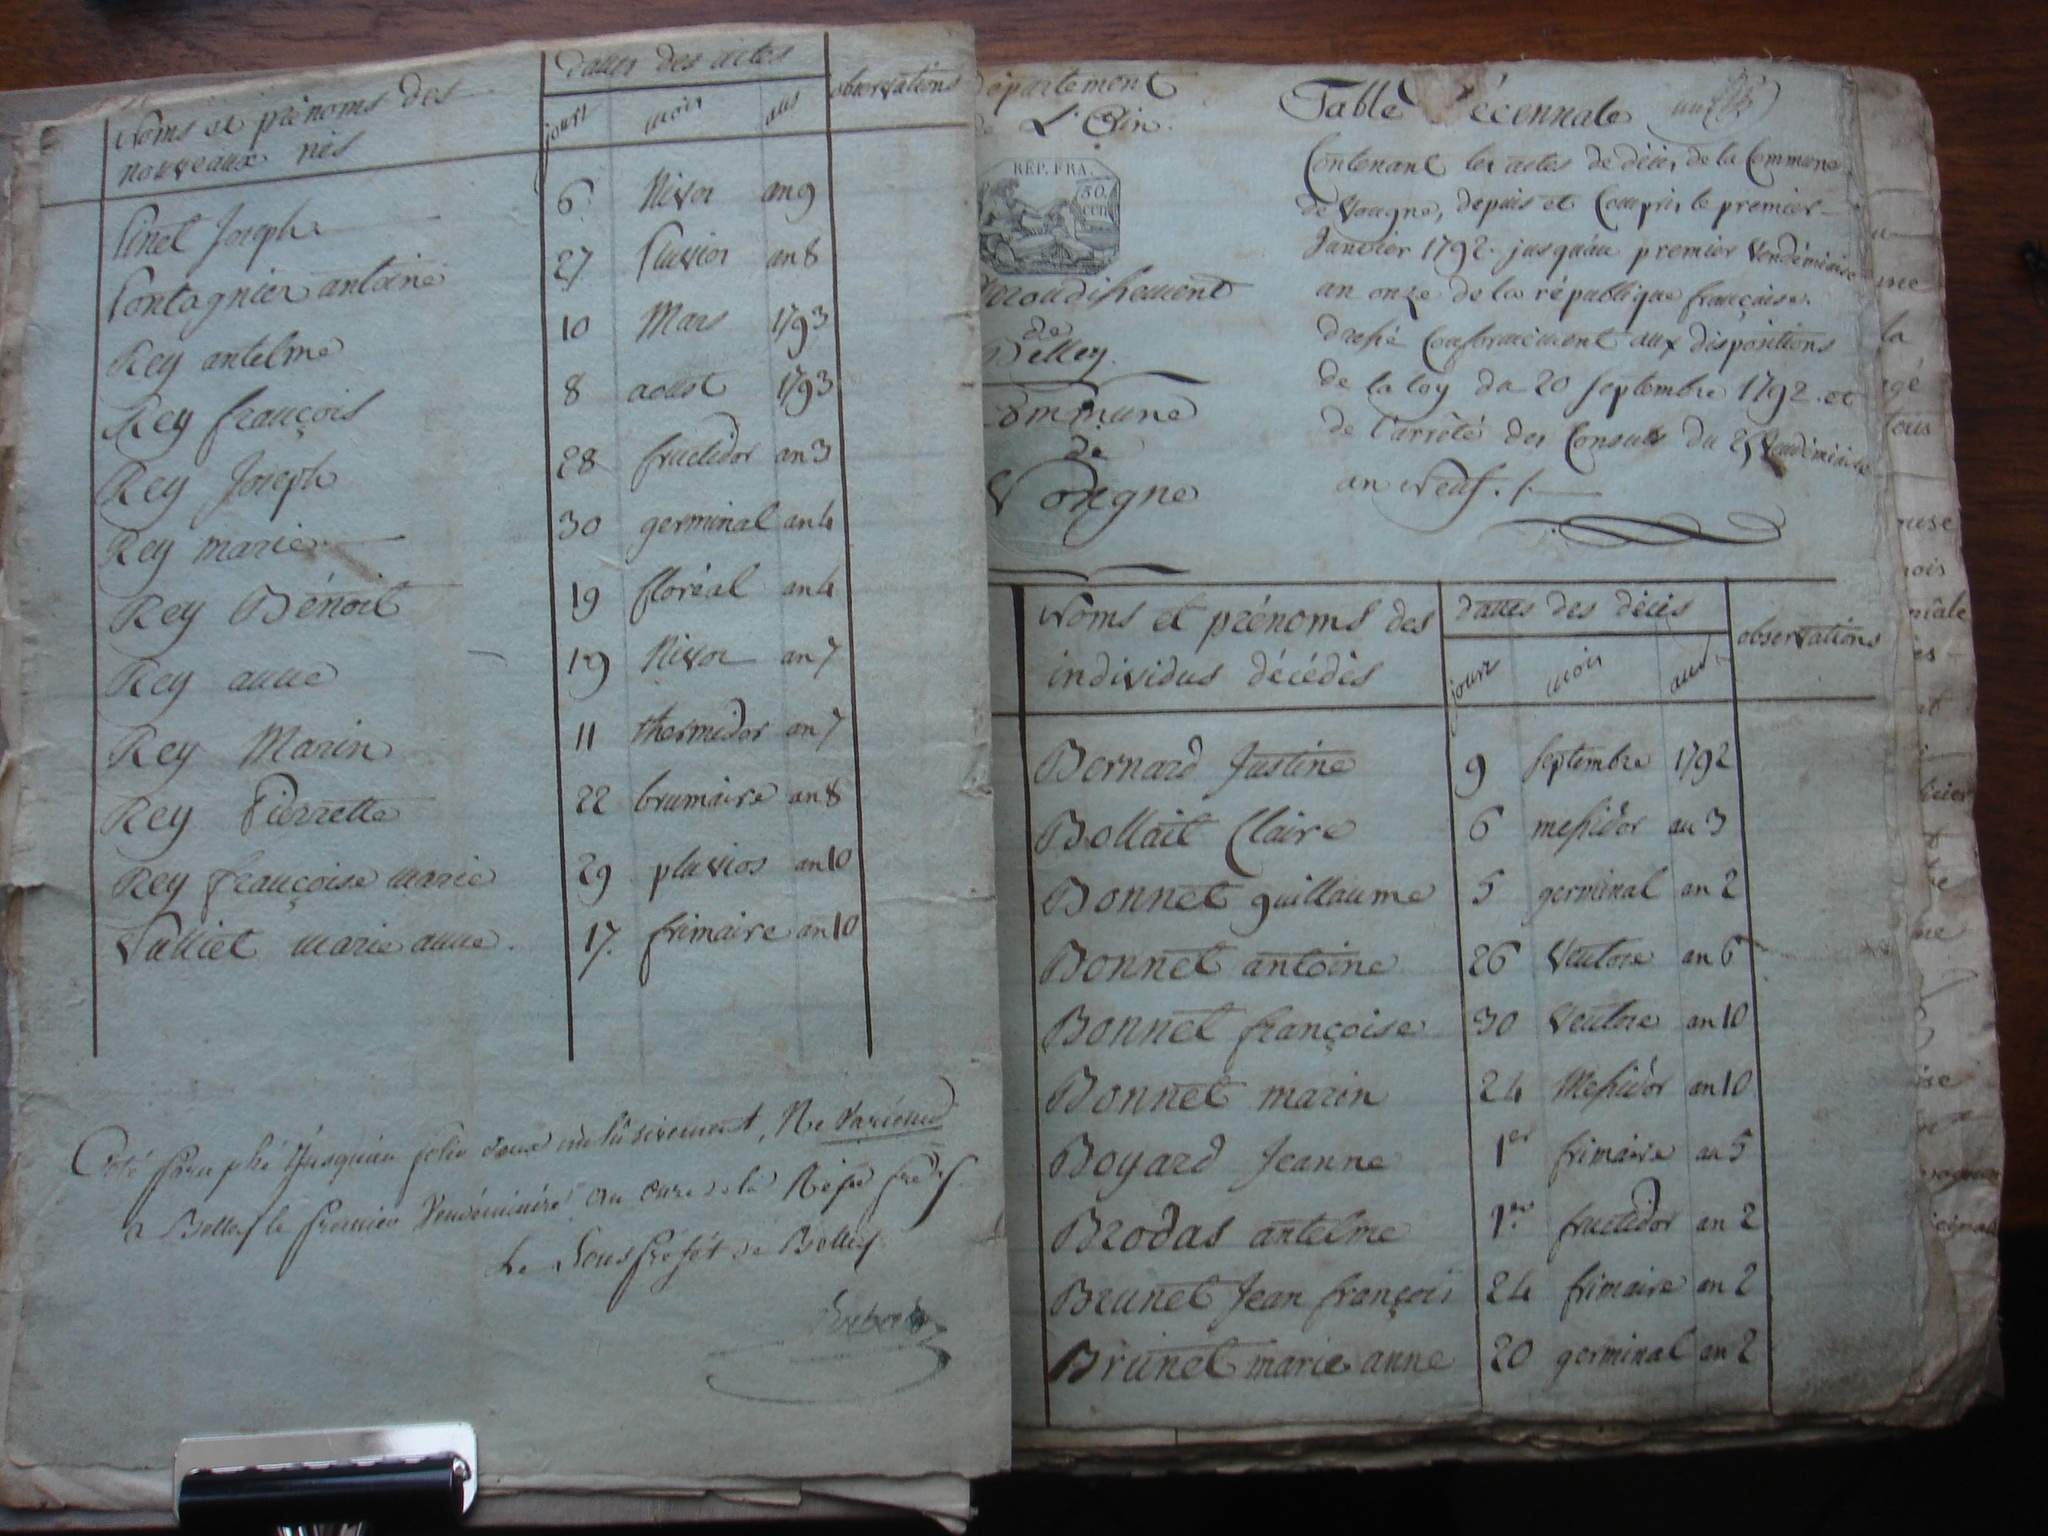 Noms et prénoms des
nouveaux nés
dattes des actes
jours mois ans
observations
Pinet Joseph 6 Nivos an 9
Pontagnier antoine 27 Pluvios an 8
Rey antelme 10 Mars 1793
Rey françois 8 aoust 1793
Rey Joseph 28 fructidor an 3
Rey marie 30 germinal an 4
Rey Bénoit 19 floréal an 4
Rey anne 19 Nivos an 7
Rey Marin 11 thermidor an 7
Rey Pierrette 22 brumaire an 8
Rey françoise marie 29 pluvios an 10
Valliet marie anne. 17. frimaire an 10
Coté paraphé jusquau folio deux inclusivement, Ne Varietur
a Belley le premier Vendémiaire an onze de la Répu frse
Le Sous préfét de Belley
département
de L'Ain.
RÉP. FRA.
50.
cent
arrondissement
de
Belley.
Commune
de
Vongne
Table Décennale
Contenant les actes de décès de la Commune
de Vongne, depuis et Compris le premier
Janvier 1792. jusqu'au premier Vendémiaire
an onze de la république française.
dressé Conformément aux dispositions
de la loy du 20 Septembre 1792. et
de l'arrêté des Consuls du 25 Vendémiaire
an Neuf. /.
Noms et prénoms des
individus décédés
dattes des décès
jours mois ans
observations
Bernard Justine 9 Septembre 1792
Bollait Claire 6 messidor an 3
Bonnet guillaume 5 germinal an 2
Bonnet antoine 26 Ventose an 6
Bonnet françoise 30 Ventose an 10
Bonnet marin 24 Messidor an 10
Boyard Jeanne 1er frimaire an 5
Brodas antelme 1er fructidor an 2
Brunet Jean françois 24 frimaire an 2
Brunet marie anne 20 germinal an 2